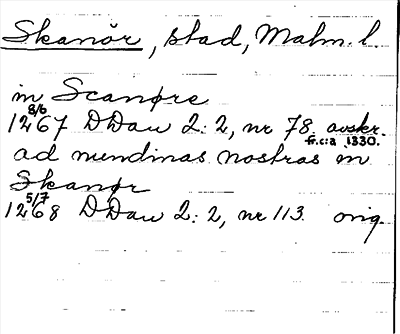 Skanör, stad, Malm. l.
in Scanøre
8/6
1267 DDan 2:2, nr 78. avskr.
fr. c:a 1330.
ad nundinas nostras in
Skanør
5/7
1268 DDan 2:2, nr 113. orig.